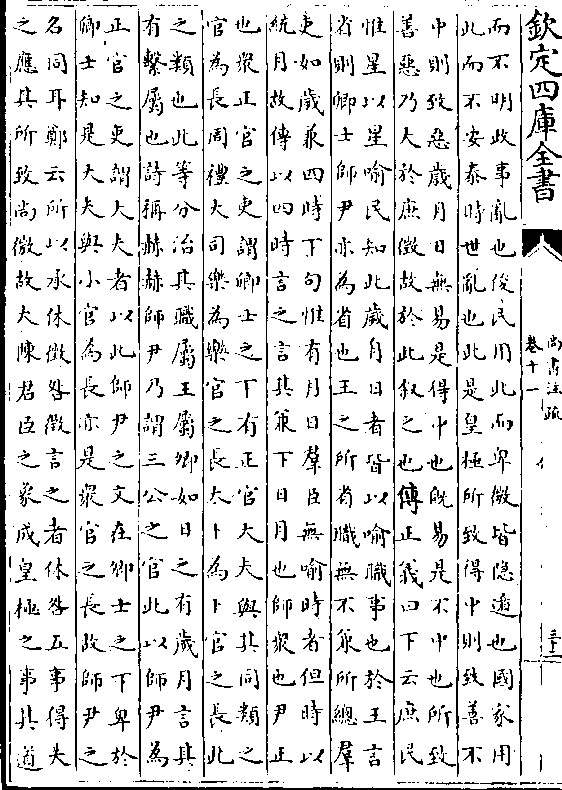 欽定四庫全書
尚書注疏
卷十一
而不明政事亂也俊民用此而卑微皆隱遁也國家用
此而不安泰時世亂也此是皇極所致得中則致善不
中則致惡歲月日無易是得中也既易是不中也所致
善惡乃大於庶徵故於此叙之也傳正義曰下云庶民
惟星以星喻民知此歲月日者皆以喻職事也於王言
省則卿士師尹亦為省也王之所省職無不兼所總羣
吏如歲兼四時下句惟有月日羣臣無喻時者但時以
統月故傳以四時言之言其兼下日月也師衆也尹正
也衆正官之吏謂卿士之下有正官大夫與其同類之
官為長周禮大司樂為樂官之長大卜為卜官之長此
之類也此等分治其職屬王屬卿如日之有歲月言其
有繫屬也詩稱赫赫師尹乃謂三公之官此以師尹為
正官之吏謂大夫者以此師尹之文在卿士之下卑於
卿士知是大夫與小官為長亦是衆官之長故師尹之
名同耳鄭云所以承休徵咎徵言之者休咎五事得失
之應其所致尚微故大陳君臣之象成皇極之事其道